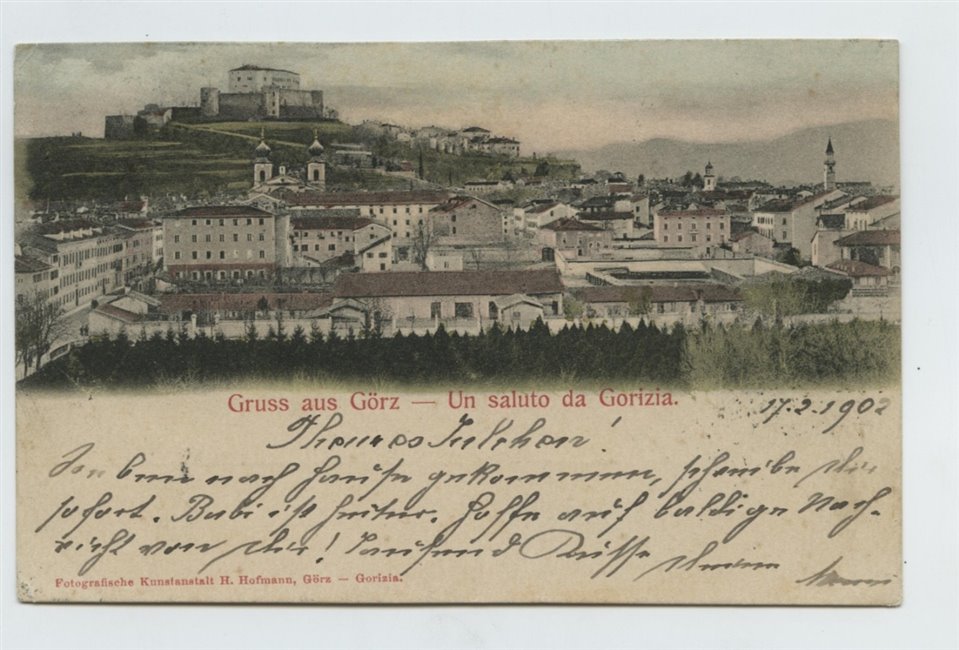 Gruss aus Görz — Un saluto da Gorizia.
17.2.1902
Theures Julchen!
ben nach Hause gekommen, schreibe dir
sofort. Bubi ist heiter. Hoffe auf baldige Nach-
richt von dir! Tausend Küsse deine
Fotografische Kunstanstalt H. Hofmann, Görz — Gorizia.